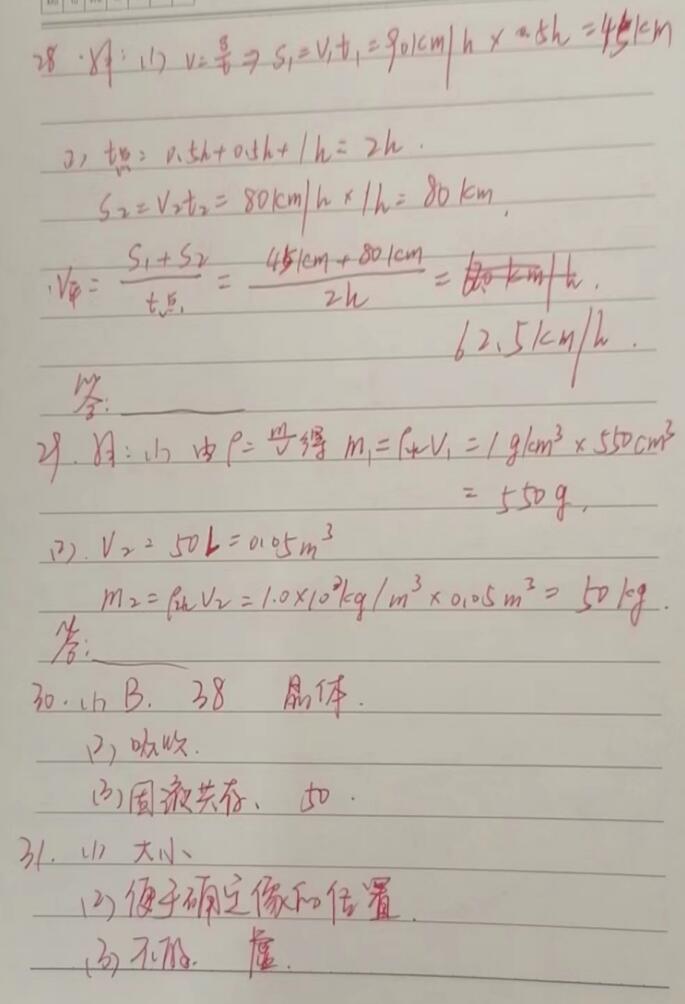 28. 解: (1) v=s/t ⇒ S₁=V₁t₁=90km/h × 0.5h=45km
(2) t总= 0.5h+0.5h+1h=2h.
S₂=V₂t₂=80km/h×1h=80km.
V平= (S₁+S₂)/t总 = (45km+80km)/2h =
62.5km/h.
答:
29. 解: (1) 由ρ=m/v得 m₁=ρ水V₁=1g/cm³×550cm³
=550g.
(2). V₂=50L=0.05m³
m₂=ρ水V₂=1.0×10³kg/m³×0.05m³=50kg.
答:
30. (1) B. 38 晶体.
(2) 吸收.
(3) 固液共存、 50.
31. (1) 大小
(2) 便于确定像的位置.
(3) 不能. 虚.